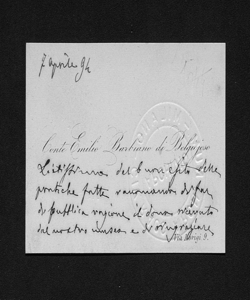 7 Aprile 94
Conte Emilio Barbiano di Belgiojoso
Lietissimo del buon esito delle
pratiche fatte raccomando di far
di pubblica ragione il dono ricevuto
dal nostro museo e di ringraziare
Via Morigi 9.